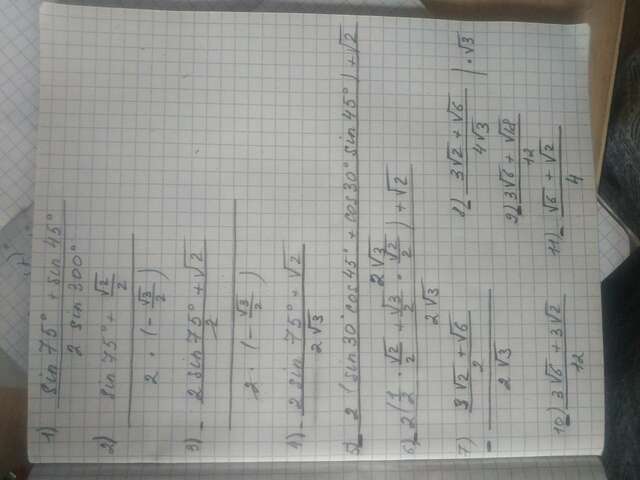 1) (sin 75° + sin 45°) / (2 sin 300°)
2) (sin 75° + √2/2) / (2 · (-√3/2))
3) - ((2 sin 75° + √2)/2) / (2 · (-√3/2))
4) - (2 sin 75° + √2) / (2√3)
5) - (2 (sin 30° cos 45° + cos 30° sin 45°) + √2) / (2√3)
6) - (2 (1/2 · √2/2 + √3/2 · √2/2) + √2) / (2√3)
7) - ((3√2 + √6)/2) / (2√3)
8) - (3√2 + √6) / (4√3) | · √3
9) - (3√6 + √18) / 12
10) - (3√6 + 3√2) / 12
11) - (√6 + √2) / 4